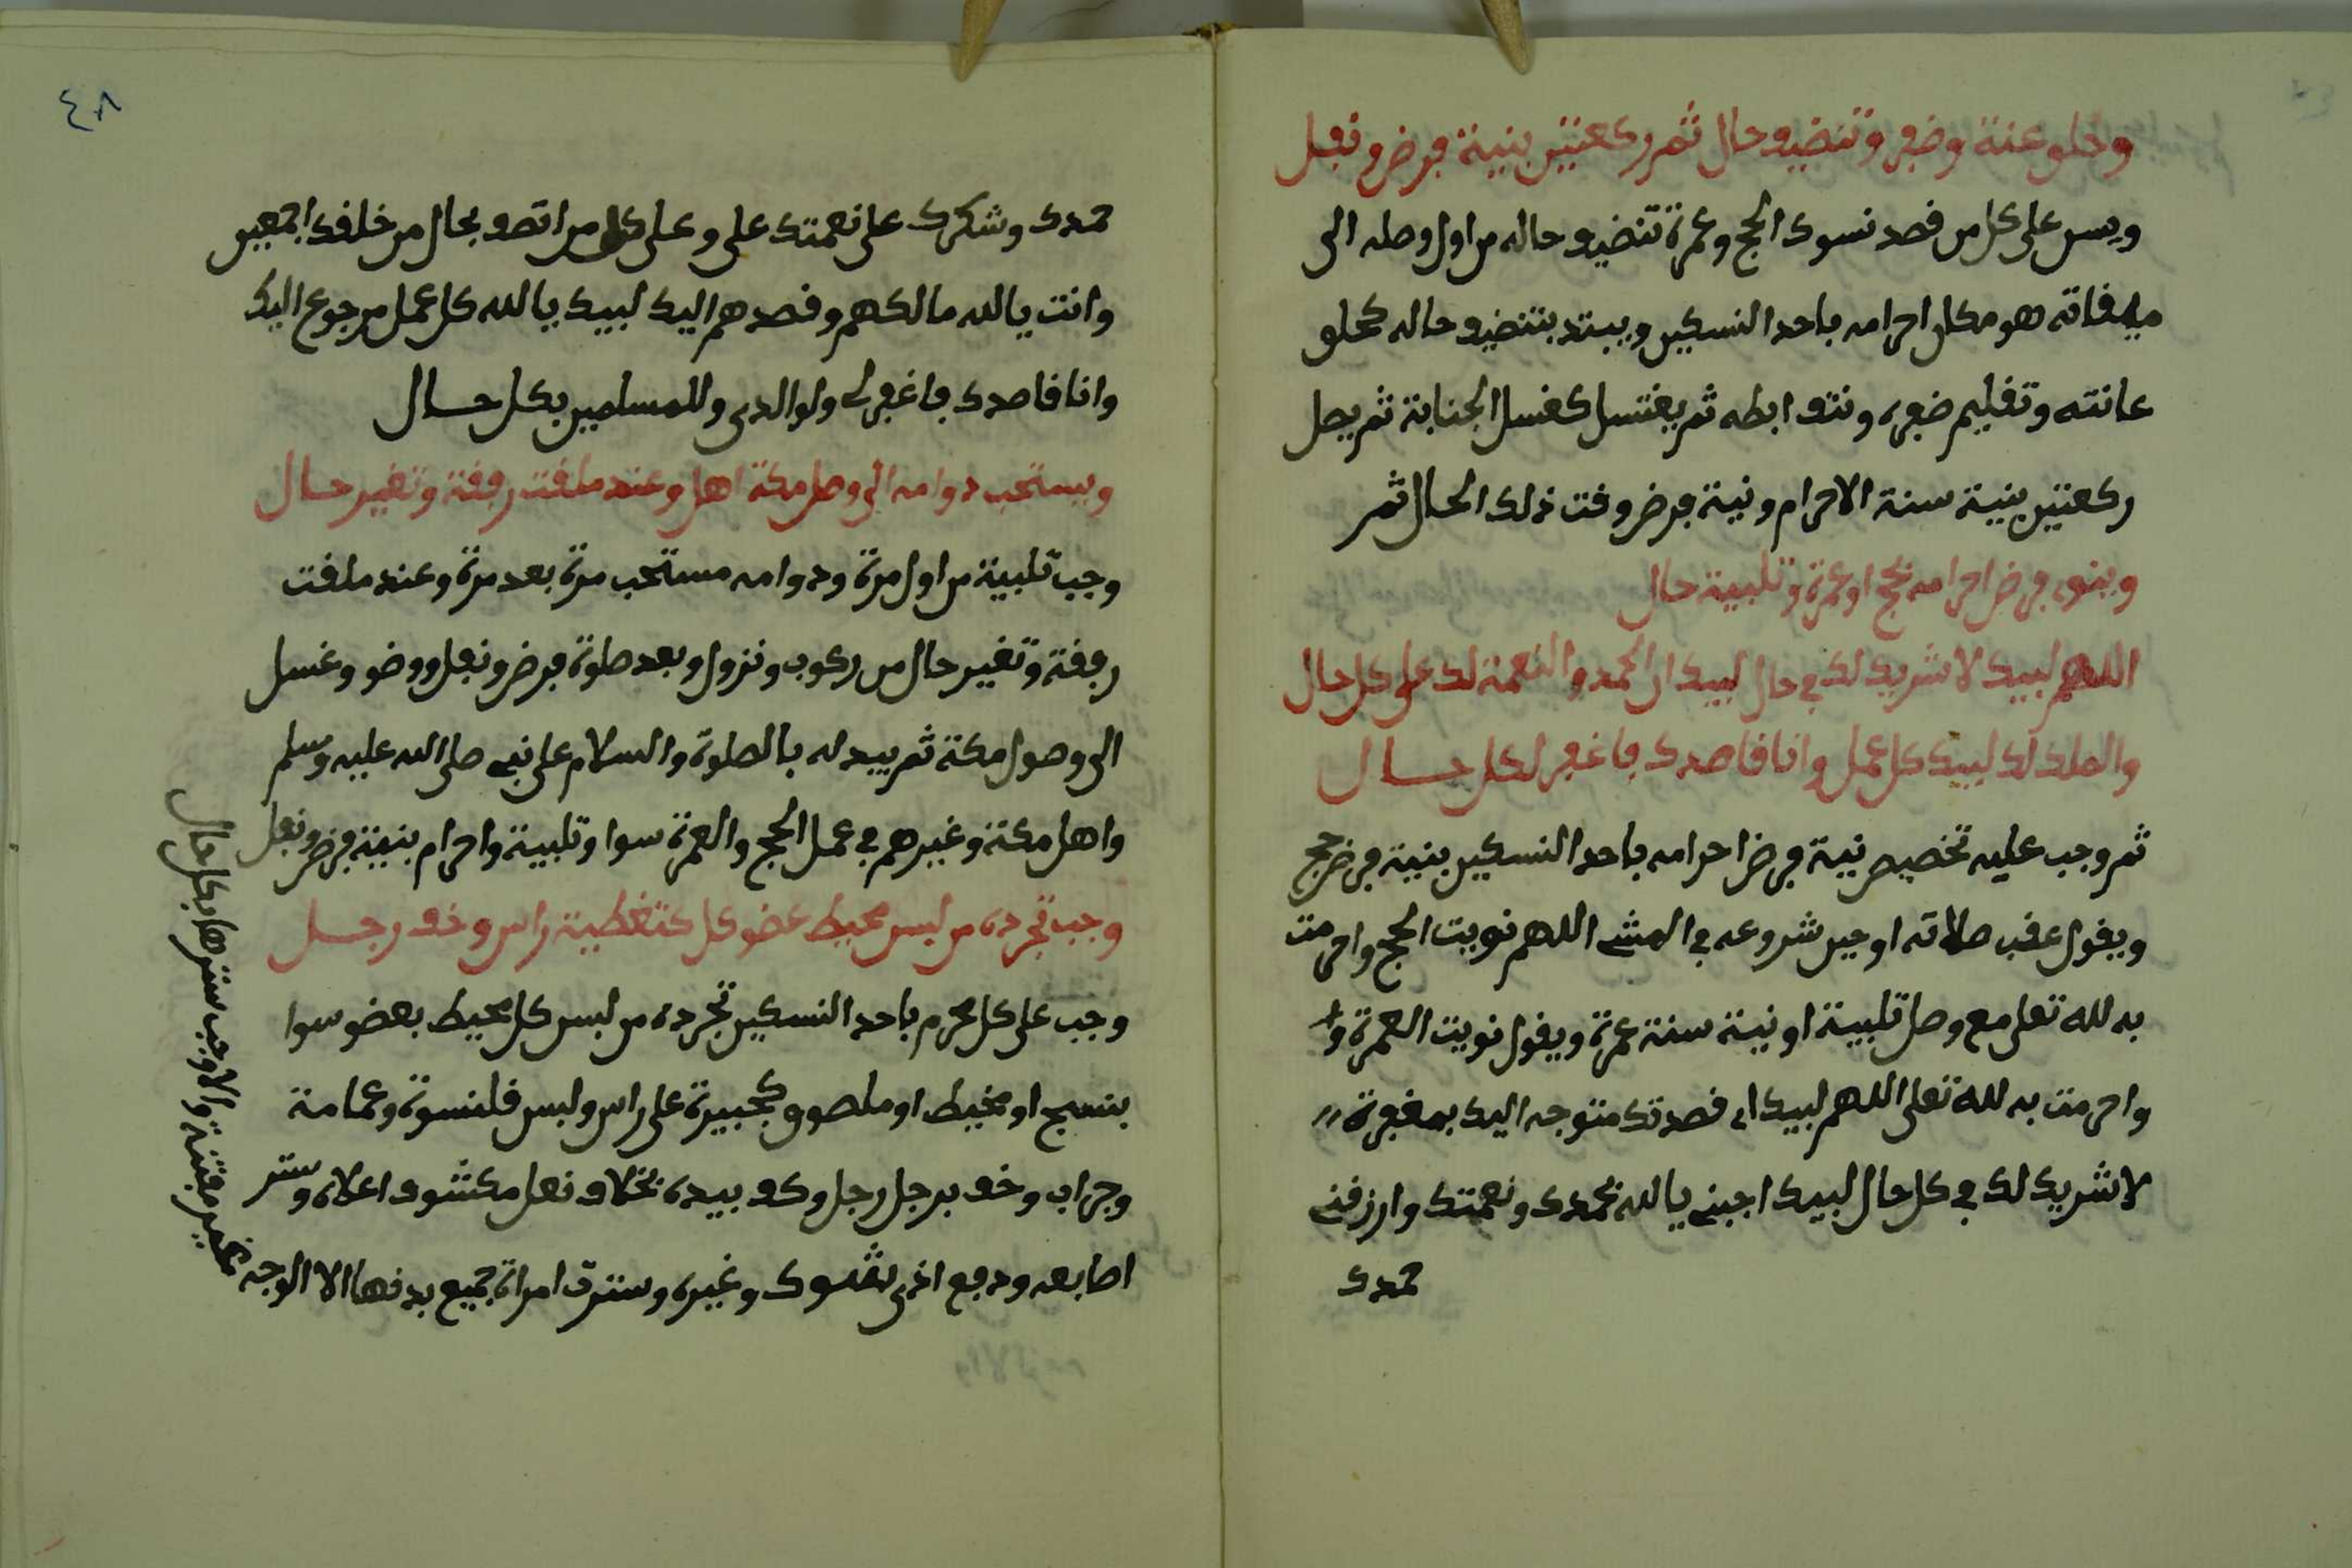 وحلو عنة وضفر وتنضيف حال ثم ركعتين بنية فرض ونفل
ويسن على كل من قصد نسوك الحج وعمرة تنضيف حاله من اول وصله الى
ميقاته هو مكان احرامه باحد النسكين ويبتد بتنضيف حاله كحلق
عانته وتقليم ضفره ونتف ابطه ثم يغتسل كغسل الجنابة ثم يصل
ركعتين بنية سنة الاحرام ونية فرض وقت ذلك الحال ثم
وينوى فرض احرامه بحج او عمرة وتلبية حال
اللهم لبيك لا شريك لك في حال لبيك ان الحمد والنعمة لك على كل حال
والملك لك لبيك كل عمل وانا قاصدك فاغفر لكل حال
ثم وجب عليه تخصيص نية فرض احرامه باحد النسكين بنية فرض حج
ويقول عقب صلاته او حين شروعه في المشي اللهم نويت الحج واحرمت
به لله تعلى مع وصل تلبية او نية سنة عمرة ويقول نويت العمرة وا
واحرمت به لله تعلى اللهم لبيك اى قصدتك متوجه اليك بمغفرة
لا شريك لك في كل حال لبيك اجبني يا لله بحمدك ونعمتك وارزقني
حمدك
٤٨
حمدك وشكرك على نعمتك على وعلى كل من اتصف بحال من خلقك اجمعين
وانت يا لله مالكهم وقصدهم اليك لبيك يا لله كل عمل مرجوع اليك
وانا قاصدك فاغفر لى ولوالدى وللمسلمين بكل حال
ويستحب دوامه الى وصل مكة اهل وعند ملقت رفقة وتغير حال
وجب تلبية من اول مرة ودوامه مستحب مرة بعد مرة وعند ملقت
رفقة وتغير حال من ركوب ونزول وبعد صلوة فرض ونفل ووضو وغسل
الى وصول مكة ثم يبدله بالصلوة والسلام على نبي صلى الله عليه وسلم
واهل مكة وغيرهم في عمل الحج والعمرة سوا وتلبية واحرام بنية فرض ونفل
وجب تجرده من لبس محيط عضو كل كتغطية راس وخف رجل
وجب على كل محرم باحد النسكين تجرده من لبس كل محيط بعضو سوا
بنسج او مخيط او ملصوق كجبيرة على راس ولبس قلنسوة وعمامة
وجراب وخف برجل رجل وكف بيده بخلاف نعل مكشوف اعلاه وستر
اصابعه ودفع اذى بشوك وغيره وسترت امراة جميع بدنها الا الوجه
بغير مفتنة والا وجب سترها بكل حال